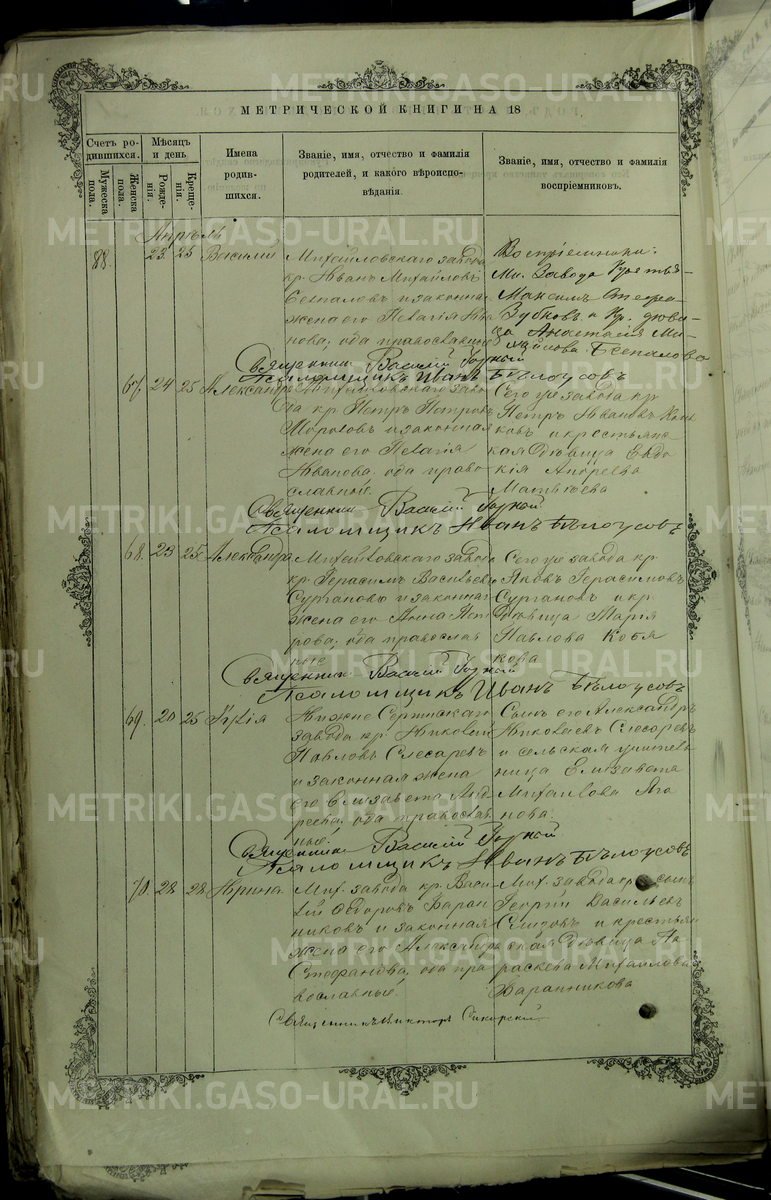 МЕТРИЧЕСКОЙ КНИГИ НА 18
Счетъ ро-
дившихся.
Мужеска
пола.
Женска
пола.
Мѣсяцъ
и день
Рожде-
нія.
Креще-
нія.
Имена
родив-
шихся.
Званіе, имя, отчество и фамилія
родителей, и какого вѣроиспо-
вѣданія.
Званіе, имя, отчество и фамилія
воспріемниковъ.
Апрѣль
88. 23. 25 Василій
Михайловскаго завода
кр. Иванъ Михайловъ
Безпаловъ и законная
жена его Пелагія Ива
нова, оба православные
Воспріемники:
Ми. Завода Крестья-
Максимъ
Зубковъ и Кр. дѣви-
ца Анастасія Ми-
хайлова Безпалова
Священникъ Василій
Псаломщикъ Иванъ Бѣлоусовъ
67. 24 25 Александръ
Михайловскаго заво
да кр. Петръ Петровъ
Морозовъ и законная
жена его Пелагія
Иванова, оба право
славные.
Сего же завода кр
Петръ Ивановъ
ковъ и крестьянс
кая дѣвица Евдо
кія Андреева
Матвѣева
Священник Василій
Псаломщикъ Иванъ Бѣлоусовъ
68. 23 25 Александра
Михайловскаго завода
кр. Герасимъ Васильевъ
Сургановъ и законная
жена его Анна Пет
рова, оба православ
ные
Сего же завода кр.
Яковъ Герасимовъ
Сургановъ и кр.
Дѣвица Марія
Павлова Кобя
кова
Священник Василій
Псаломщикъ Иванъ Бѣлоусовъ
69. 20 25
Нижне Сергинскаго
завода кр. Николай
Павловъ Слесаревъ
и законная жена
его Елизавета Анд
реева, оба православ
ные.
Сынъ его Александръ
Николаевъ Слесаревъ
и сельская учитель
ница Елизавета
Михайлова Яго
нова.
Священникъ Василій
Псаломщикъ Иванъ Бѣлоусовъ
70. 28 28. Ирина
Мих. завода кр. Васи
лій Ѳедоровъ Баран
никовъ и законная
жена его Александра
Стефанова, оба пра
вославные.
Мих. завода кр. сынъ
Георгій Васильевъ
и крестьян
ская дѣвица Па
раскева Михайлова
Баранникова
Священникъ Викторъ Сикорскій
METRIKI.GASO-URAL.RU